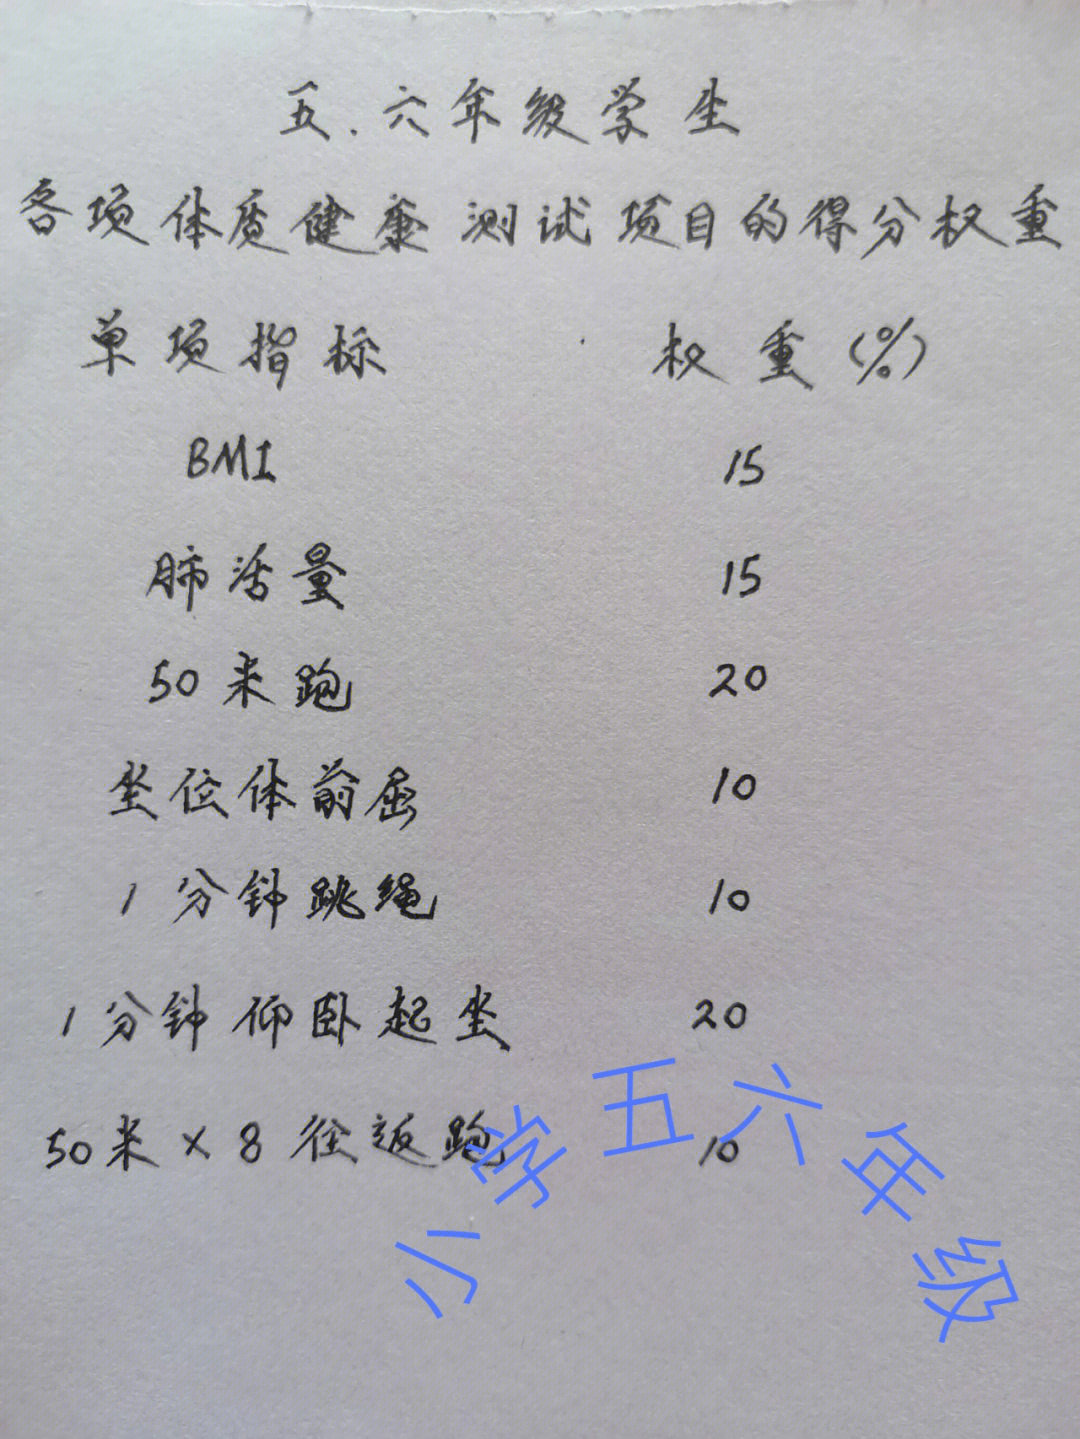 五.六年级学生
各项体质健康测试项目的得分权重
单项指标 权重(%)
BMI 15
肺活量 15
50米跑 20
坐位体前屈 10
1分钟跳绳 10
1分钟仰卧起坐 20
50米×8往返跑 10
小学五六年级